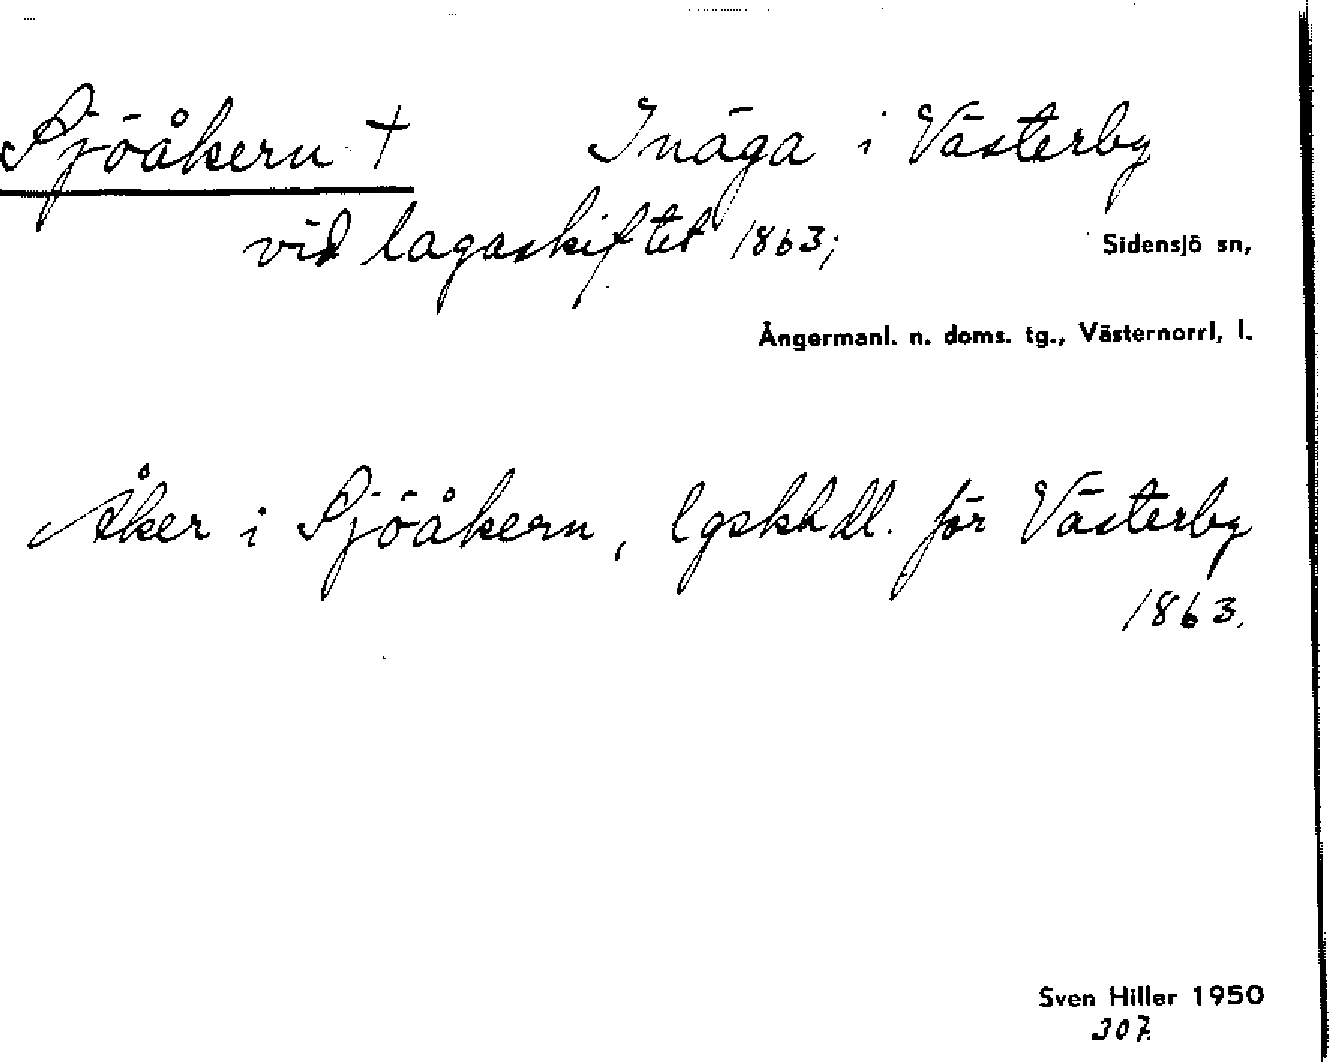 Sjöåkern † Inäga i Västerby
vid lagaskiftet 1863;
Sidensjö sn,
Ångermanl. n. doms. tg., Västernorrl, l.
Åker i Sjöåkern, lgskhdl. för Västerby
1863.
Sven Hiller 1950
307.